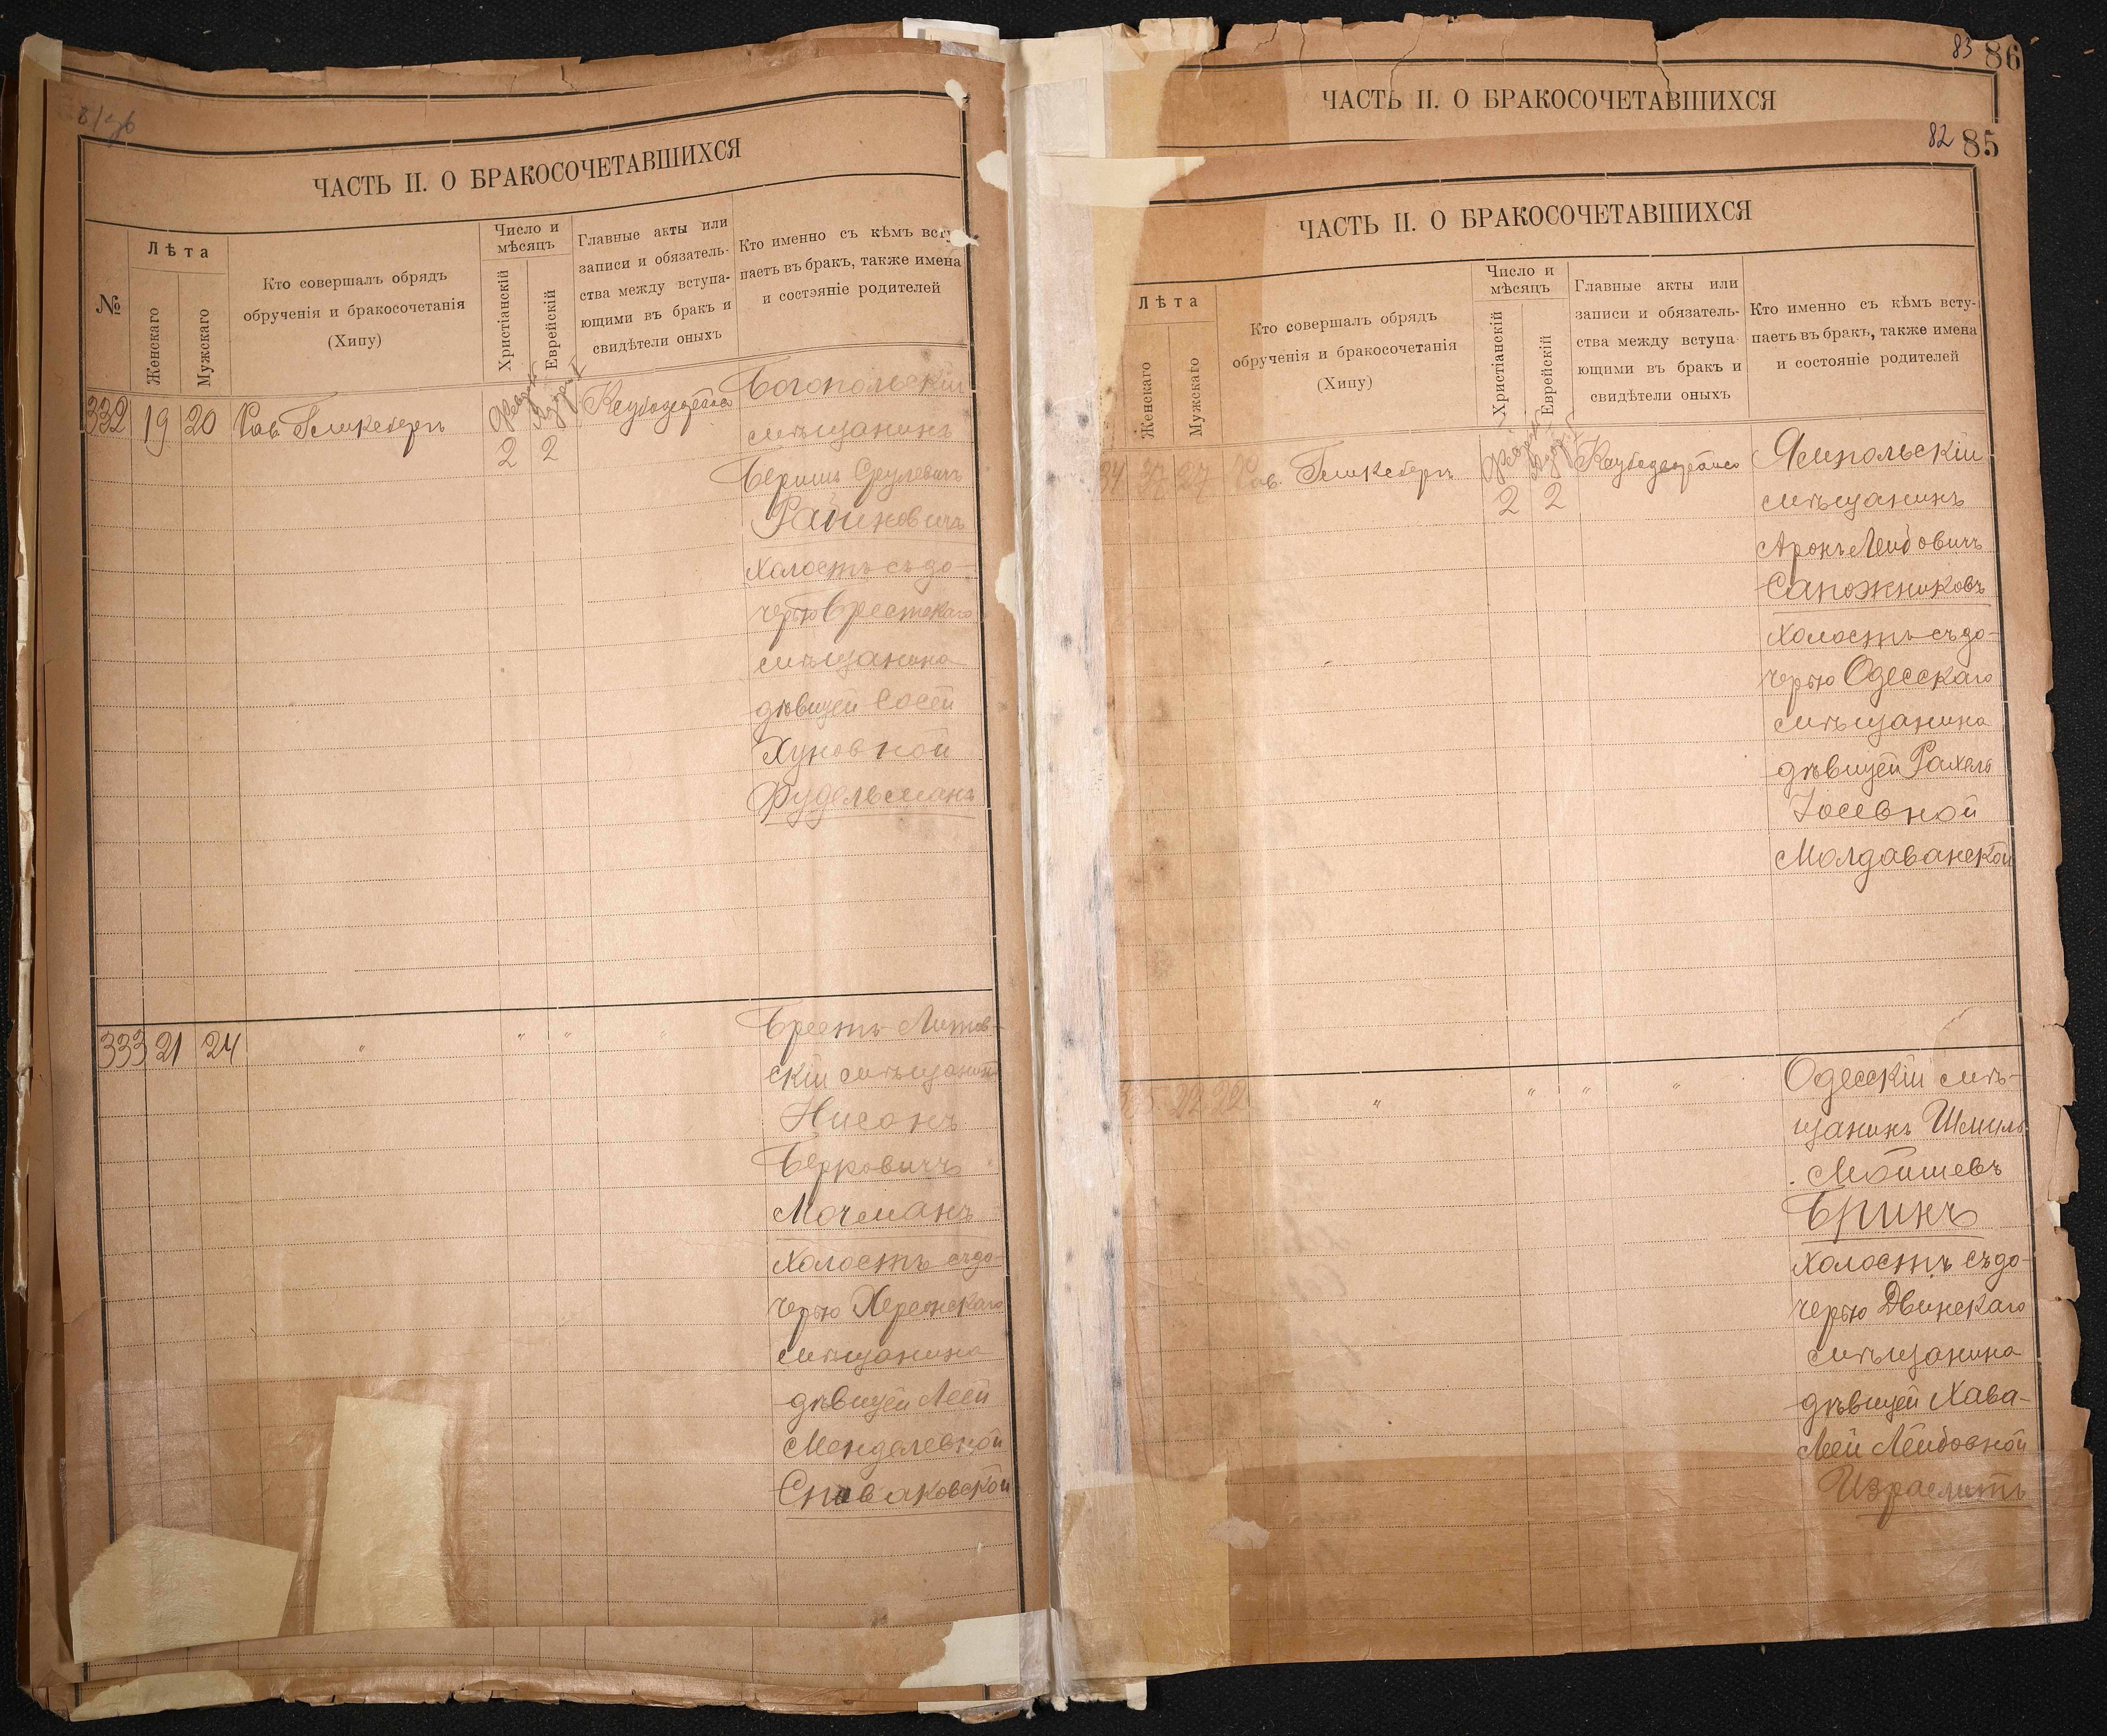 ЧАСТЬ II. О БРАКОСОЧЕТАВШИХСЯ
№
Лѣта
Женскаго
Мужскаго
Кто совершалъ обрядъ
обрученія и бракосочетанія
(Хипу)
Число и
мѣсяцъ
Христіанскій
Еврейскій
Главные акты или
записи и обязатель-
ства между вступа-
ющими въ бракъ и
свидѣтели оныхъ
Кто именно съ кѣмъ всту
паетъ въ бракъ, также имена
и состэяніе родителей
332 19 20 Рав. 2 2
Богопольскій
мѣщанинъ
Беришъ
Рабиновичъ
холостъ съ до-
черью Брестскаго
мѣщанина
дѣвицей Сосей
Хуновной
Фудельманъ
333 21 24 " " " "
Брестъ-Литов-
скій мѣщанинъ
Нисонъ
Берковичъ
Мочманъ
холостъ съ до-
черью Херсонскаго
мѣщанина
дѣвицей Леей
Менделевной
Спиваковской
83 86
ЧАСТЬ II. О БРАКОСОЧЕТАВШИХСЯ
82 85
ЧАСТЬ II. О БРАКОСОЧЕТАВШИХСЯ
Лѣта
Женскаго
Мужскаго
Кто совершалъ обрядъ
обрученія и бракосочетанія
(Хипу)
Число и
мѣсяцъ
Христіанскій
Еврейскій
Главные акты или
записи и обязатель-
ства между вступа
ющими въ бракъ и
свидѣтели оныхъ
Кто именно съ кѣмъ всту-
паетъ въ бракъ, также имена
и состояніе родителей
34 37 27 Рав. 2 2
Ямпольскій
мѣщанинъ
Аронъ Лейбовичъ
Сапожниковъ
холостъ съ до-
черью Одесскаго
мѣщанина
дѣвицей Рахель
Іосевной
Молдаванской
22 22 " " " "
Одесскій мѣ-
щанинъ Шмиль
Мойшевъ
Бринъ
холостъ съ до-
черью Двинскаго
мѣщанина
дѣвицей Хава-
Леей Лейбовной
Израелитъ